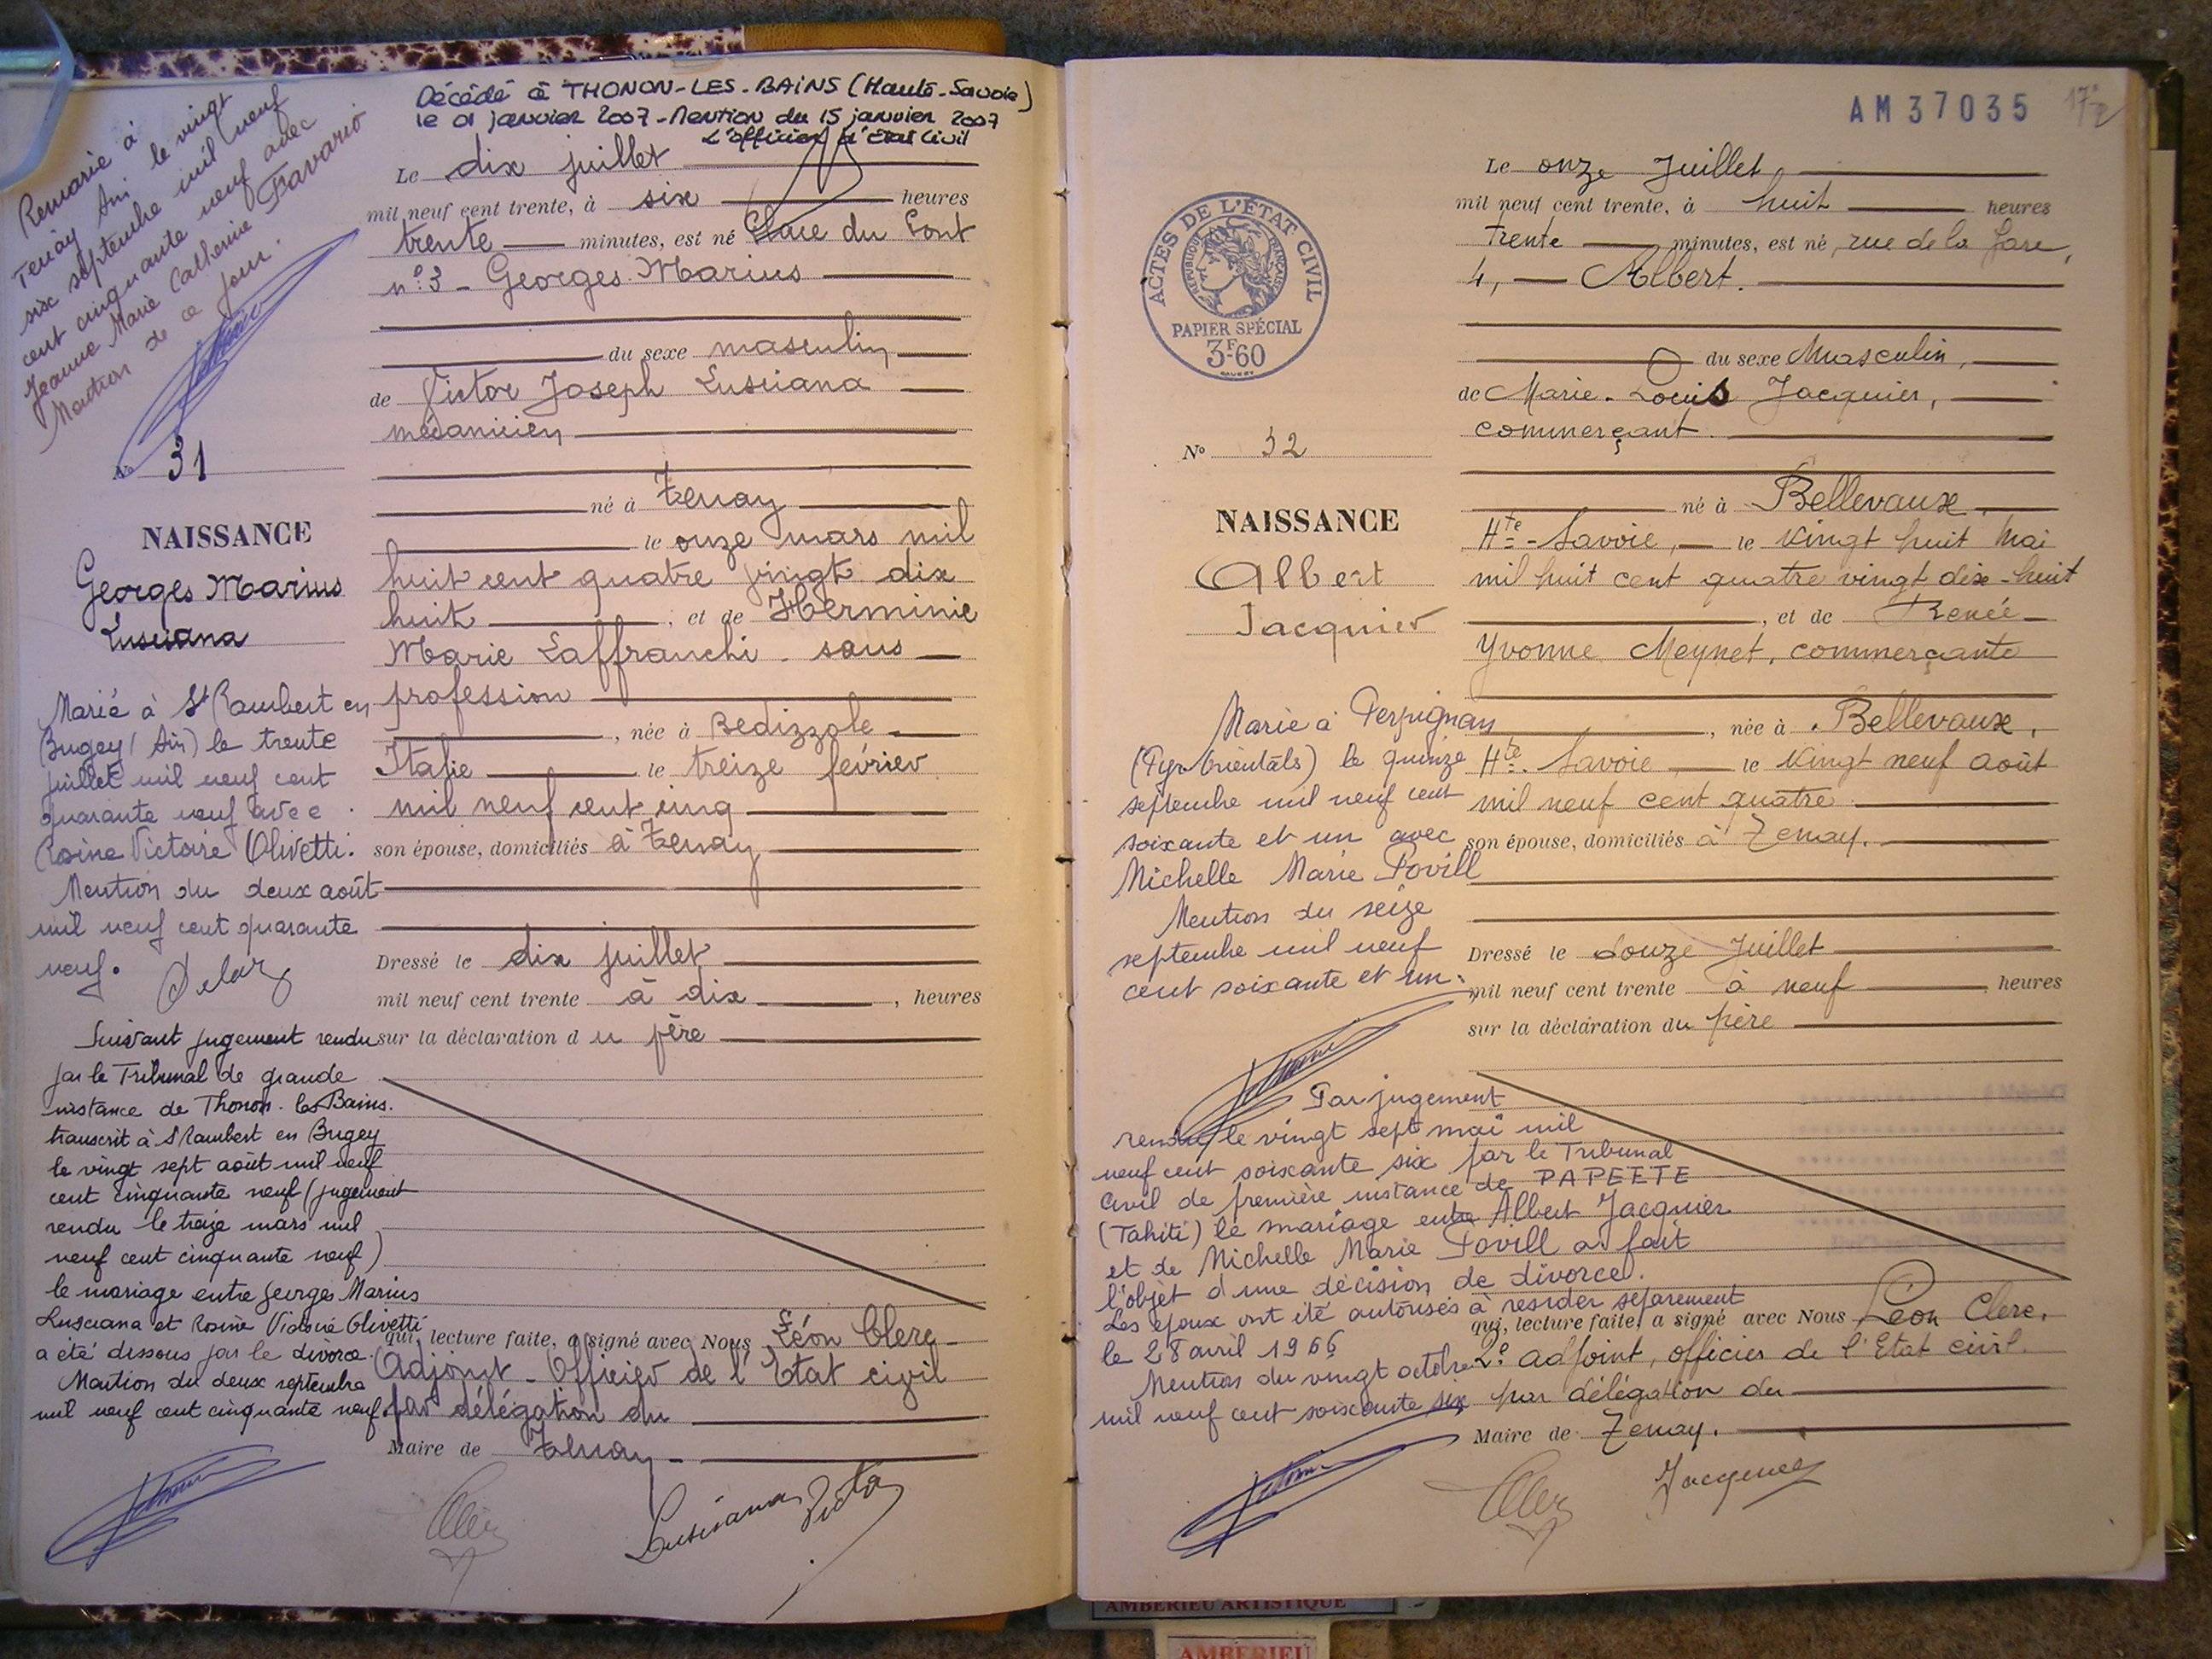 Décédé à THONON-LES-BAINS (Haute-Savoie)
le 01 janvier 2007 - Mention du 15 janvier 2007
L'officier d'état civil
Remarié à
Tenay Ain le vingt
six septembre mil neuf
cent cinquante neuf avec
Jeanne Marie Catherine Favario
Mention de ce jour.
No 31
NAISSANCE
Georges Marius
Lusciana
Marié à St Rambert en
Bugey (Ain) le trente
juillet mil neuf cent
quarante neuf avec
Rosine Victoire Olivetti.
Mention du deux août
mil neuf cent quarante
neuf.
Suivant jugement rendu
par le Tribunal de grande
instance de Thonon-les-Bains.
transcrit à St Rambert en Bugey
le vingt sept août mil neuf
cent cinquante neuf (jugement
rendu le treize mars mil
neuf cent cinquante neuf)
le mariage entre Georges Marius
Lusciana et Rosine Victoire Olivetti
a été dissous par le divorce.
Mention du deux septembre
mil neuf cent cinquante neuf.
Le dix juillet
mil neuf cent trente, à six heures
trente minutes, est né Place du Pont
n° 3 - Georges Marius
du sexe masculin
de Victor Joseph Lusciana
mécanicien
né à Tenay
le onze mars mil
huit cent quatre vingt dix
huit ; et de Herminie
Marie Laffranchi - sans
profession
, née à Bedizzole
Italie le treize février
mil neuf cent cinq
son épouse, domiciliés à Tenay
Dressé le dix juillet
mil neuf cent trente à dix , heures
sur la déclaration du père
qui, lecture faite, a signé avec Nous Léon Clerc
Adjoint - Officier de l'Etat civil
par délégation du
Maire de Tenay -
Clerc
Lusciana Victor
AM37035
ACTES DE L'ETAT CIVIL
REPUBLIQUE FRANÇAISE
PAPIER SPÉCIAL
3F60
No 32
NAISSANCE
Albert
Jacquier
Marié à Perpignan
(Pyr. Orientales) le quinze
septembre mil neuf cent
soixante et un avec
Michelle Marie Povill
Mention du seize
septembre mil neuf
cent soixante et un.
Par jugement
rendu le vingt sept mai mil
neuf cent soixante six par le Tribunal
Civil de première instance de PAPEETE
(Tahiti) le mariage entre Albert Jacquier
et de Michelle Marie Povill a fait
l'objet d'une décision de divorce.
Les époux ont été autorisés à résider séparément
le 28 avril 1966
Mention du vingt octobre
mil neuf cent soixante six
Le onze Juillet,
mil neuf cent trente, à huit heures
trente minutes, est né, rue de la Gare,
4, Albert.
du sexe Masculin,
de Marie-Louis Jacquier,
commerçant.
né à Bellevaux,
Hte-Savoie, le vingt huit Mai
mil huit cent quatre vingt dix-huit
, et de Renée
Yvonne Meynet, commerçante
, née à Bellevaux,
Hte. Savoie le vingt neuf août
mil neuf cent quatre
son épouse, domiciliés à Tenay.
Dressé le douze Juillet
mil neuf cent trente à neuf heures
sur la déclaration du père
qui, lecture faite, a signé avec Nous Léon Clerc,
2e adjoint, officier de l'Etat civil
par délégation du
Maire de Tenay.
Clerc
Jacquier
AMBERIEU ARTISTIQUE
AMBERIEU